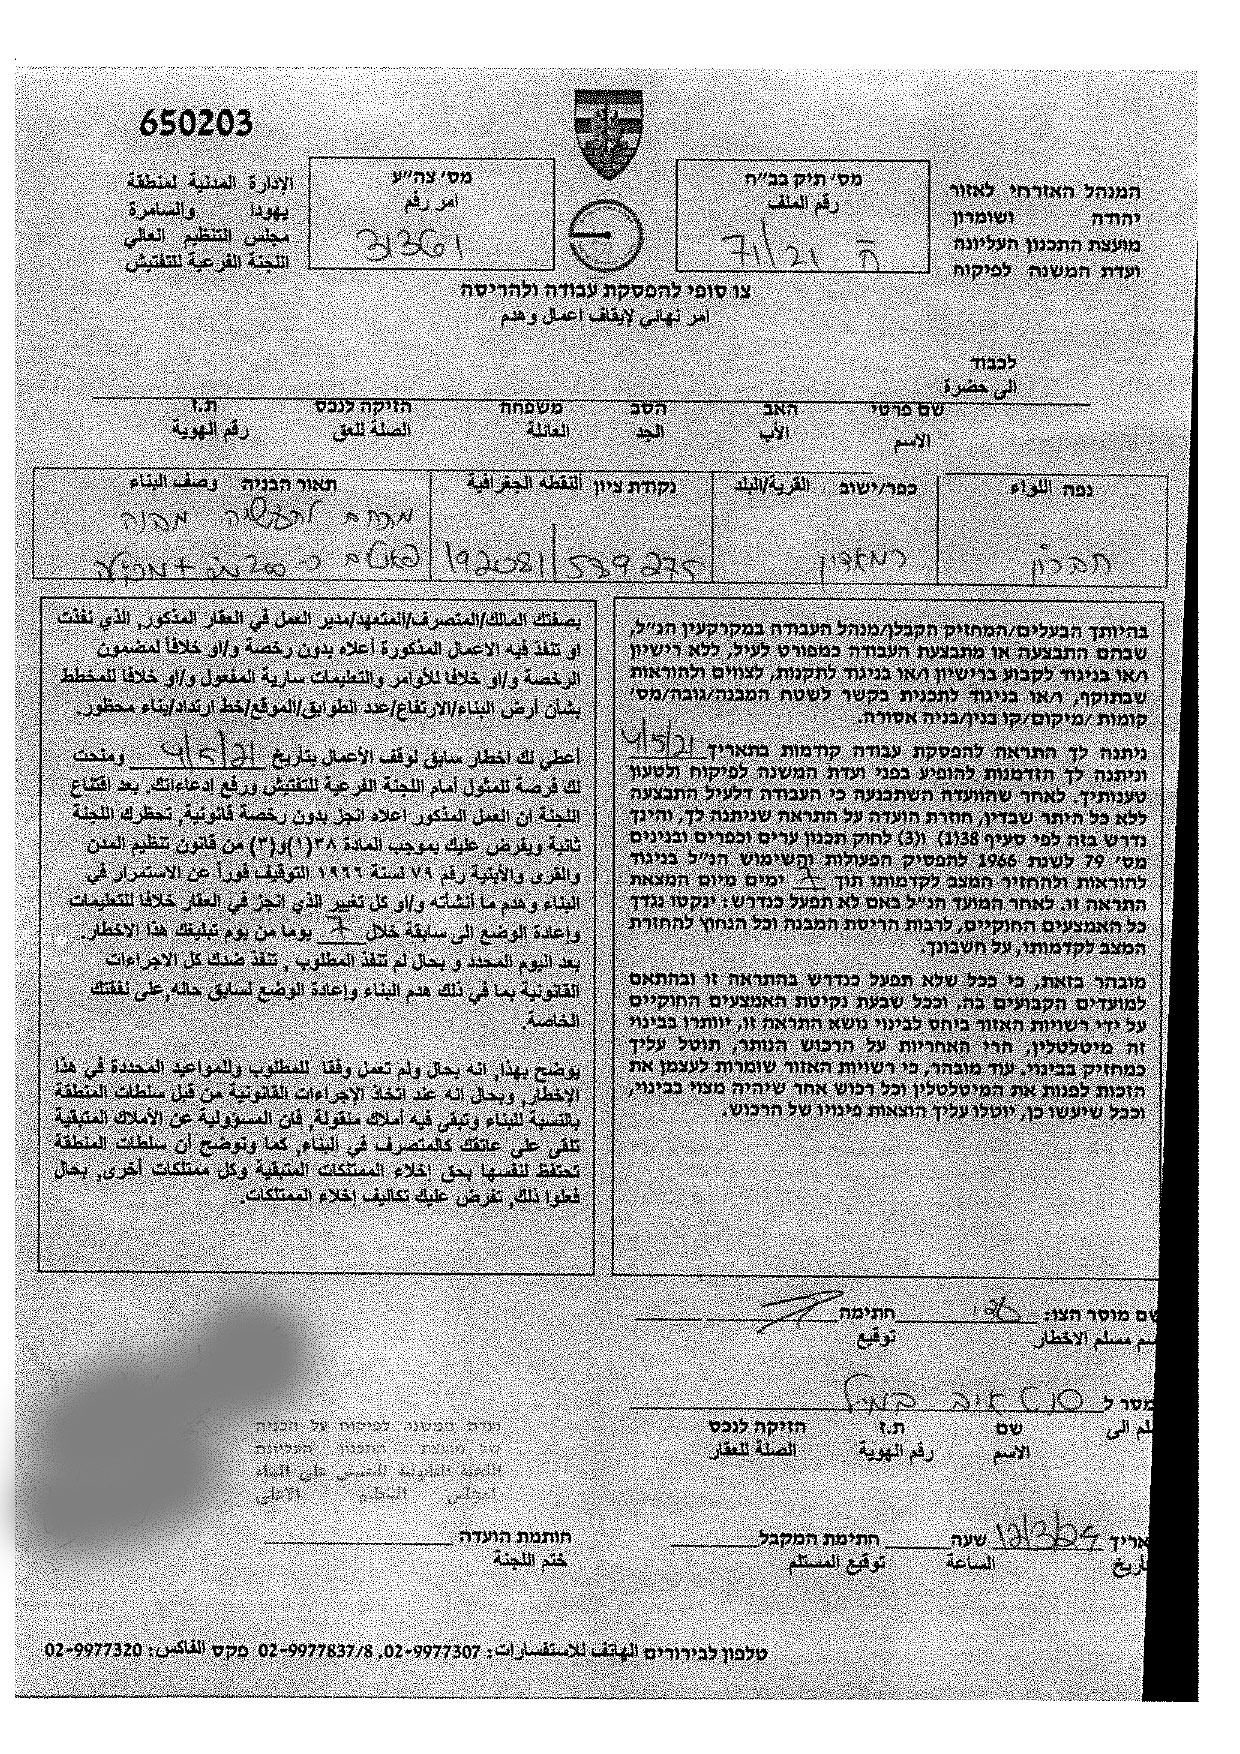 650203
המנהל האזרחי לאזור
יהודה ושומרון
מועצת התכנון העליונה
ועדת המשנה לפיקוח
מס׳ תיק בב״ח
رقم الملف
ה 71/21
מס׳ צה״ע
امر رقم
31361
الإدارة المدنية لمنطقة
يهودا والسامرة
مجلس التنظيم العالي
اللجنة الفرعية للتفتيش
צו סופי להפסקת עבודה ולהריסה
امر نهائي لإيقاف اعمال وهدم
לכבוד
الى حضرة
שם פרטי האב הסב משפחה הזיקה לנכס ת.ז
الاسم الأب الجد العائلة الصلة للعق رقم الهوية
נפה اللواء
חברון
כפר/ישוב القرية/البلد
נקודת ציון النقطه الجغرافية
192081/589275
תאור הבניה وصف البناء
בהיותך הבעלים/המחזיק הקבלן/מנהל העבודה במקרקעין הנ״ל,
שבהם התבצעה או מתבצעת העבודה כמפורט לעיל, ללא רישיון
ו/או בניגוד לקבוע ברישיון ו/או בניגוד לתקנות, לצווים ולהוראות
שבתוקף, ו/או בניגוד לתכנית בקשר לשטח המבנה/גובה/מס׳
קומות /מיקום/קו בנין/בניה אסורה.
ניתנה לך התראה להפסקת עבודה קודמות בתאריך 4/5/21
וניתנה לך הזדמנות להופיע בפני ועדת המשנה לפיקוח ולטעון
טענותיך. לאחר שהוועדה השתכנעה כי העבודה דלעיל התבצעה
ללא כל היתר שבדין, חוזרת הועדה על התראה שניתנה לך, והינך
נדרש בזה לפי סעיף 38(1) ו(3) לחוק תכנון ערים וכפרים ובנינים
מס׳ 79 לשנת 1966 להפסיק הפעולות והשימוש הנ״ל בניגוד
להוראות ולהחזיר המצב לקדמותו תוך 7 ימים מיום המצאת
התראה זו. לאחר המועד הנ״ל באם לא תפעל כנדרש: ינקטו נגדך
כל האמצעים החוקיים, לרבות הריסת המבנה וכל הנחוץ להחזרת
המצב לקדמותו, על חשבונך.
מובהר בזאת, כי ככל שלא תפעל כנדרש בהתראה זו ובהתאם
למועדים הקבועים בה, וככל שבעת נקיטת האמצעים החוקיים
על ידי רשויות האזור ביחס לבינוי נושא התראה זו, יוותרו בבינוי
זה מיטלטלין, הרי האחריות על הרכוש הנותר, תוטל עליך
כמחזיק בבינוי. עוד מובהר, כי רשויות האזור שומרות לעצמן את
הזכות לפנות את המיטלטלין וכל רכוש אחר שיהיה מצוי בבינוי,
וככל שיעשו כן, יוטלו עליך הוצאות פינויו של הרכוש.
بصفتك المالك/المتصرف/المتعهد/مدير العمل في العقار المذكور, الذي نفذت
او تنفذ فيه الاعمال المذكورة أعلاه بدون رخصة و/او خلافا لمضمون
الرخصة و/او خلافا للأوامر والتعليمات سارية المفعول و/او خلافا للمخطط
بشأن أرض البناء/الارتفاع/عدد الطوابق/الموقع/خط ارتداد/بناء محظور.
أعطي لك اخطار سابق لوقف الأعمال بتاريخ 4/5/21 ومنحت
لك فرصة للمثول أمام اللجنة الفرعية للتفتيش ورفع إدعاءاتك. بعد اقتناع
اللجنة ان العمل المذكور اعلاه انجز بدون رخصة قانونية, تحظرك اللجنة
ثانية ويفرض عليك بموجب المادة ٣٨(١)و(٣) من قانون تنظيم المدن
والقرى والأبنية رقم ٧٩ لسنة ١٩٦٦ التوقيف فوراً عن الاستمرار في
البناء وهدم ما أنشأته و/او كل تغيير الذي انجز في العقار خلافا للتعليمات
وإعادة الوضع الى سابقة خلال 7 يوما من يوم تبليغك هذا الإخطار.
بعد اليوم المحدد و بحال لم تنفذ المطلوب , تنفذ ضدك كل الاجراءات
القانونية بما في ذلك هدم البناء وإعادة الوضع لسابق حاله,على نفقتك
الخاصة.
يوضح بهذا, انه بحال ولم تعمل وفقا للمطلوب وللمواعيد المحددة في هذا
الإخطار, وبحال إنه عند اتخاذ الإجراءات القانونية من قبل سلطات المنطقة
بالنسبة للبناء وتبقى فيه أملاك منقولة, فان المسؤولية عن الأملاك المتبقية
تلقى على عاتقك كالمتصرف في البناء, كما وتوضح أن سلطات المنطقة
تحتفظ لنفسها بحق إخلاء الممتلكات المتبقية وكل ممتلكات أخرى, بحال
فعلوا ذلك, تفرض عليك تكاليف إخلاء الممتلكات.
שם מוסר הצו: חתימה
اسم مسلم الاخطار توقيع
נמסר ל
سلم الى
שם ת.ז הזיקה לנכס
الاسم رقم الهوية الصلة للعقار
תאריך 12/3/24 שעה חתימת המקבל
תاريخ الساعة توقيع المستلم
חותמת הועדה
ختم اللجنة
טלפון לבירורים الهاتف للاستفسارات: 02-9977307, 02-9977837/8 פקס الفاكس: 02-9977320